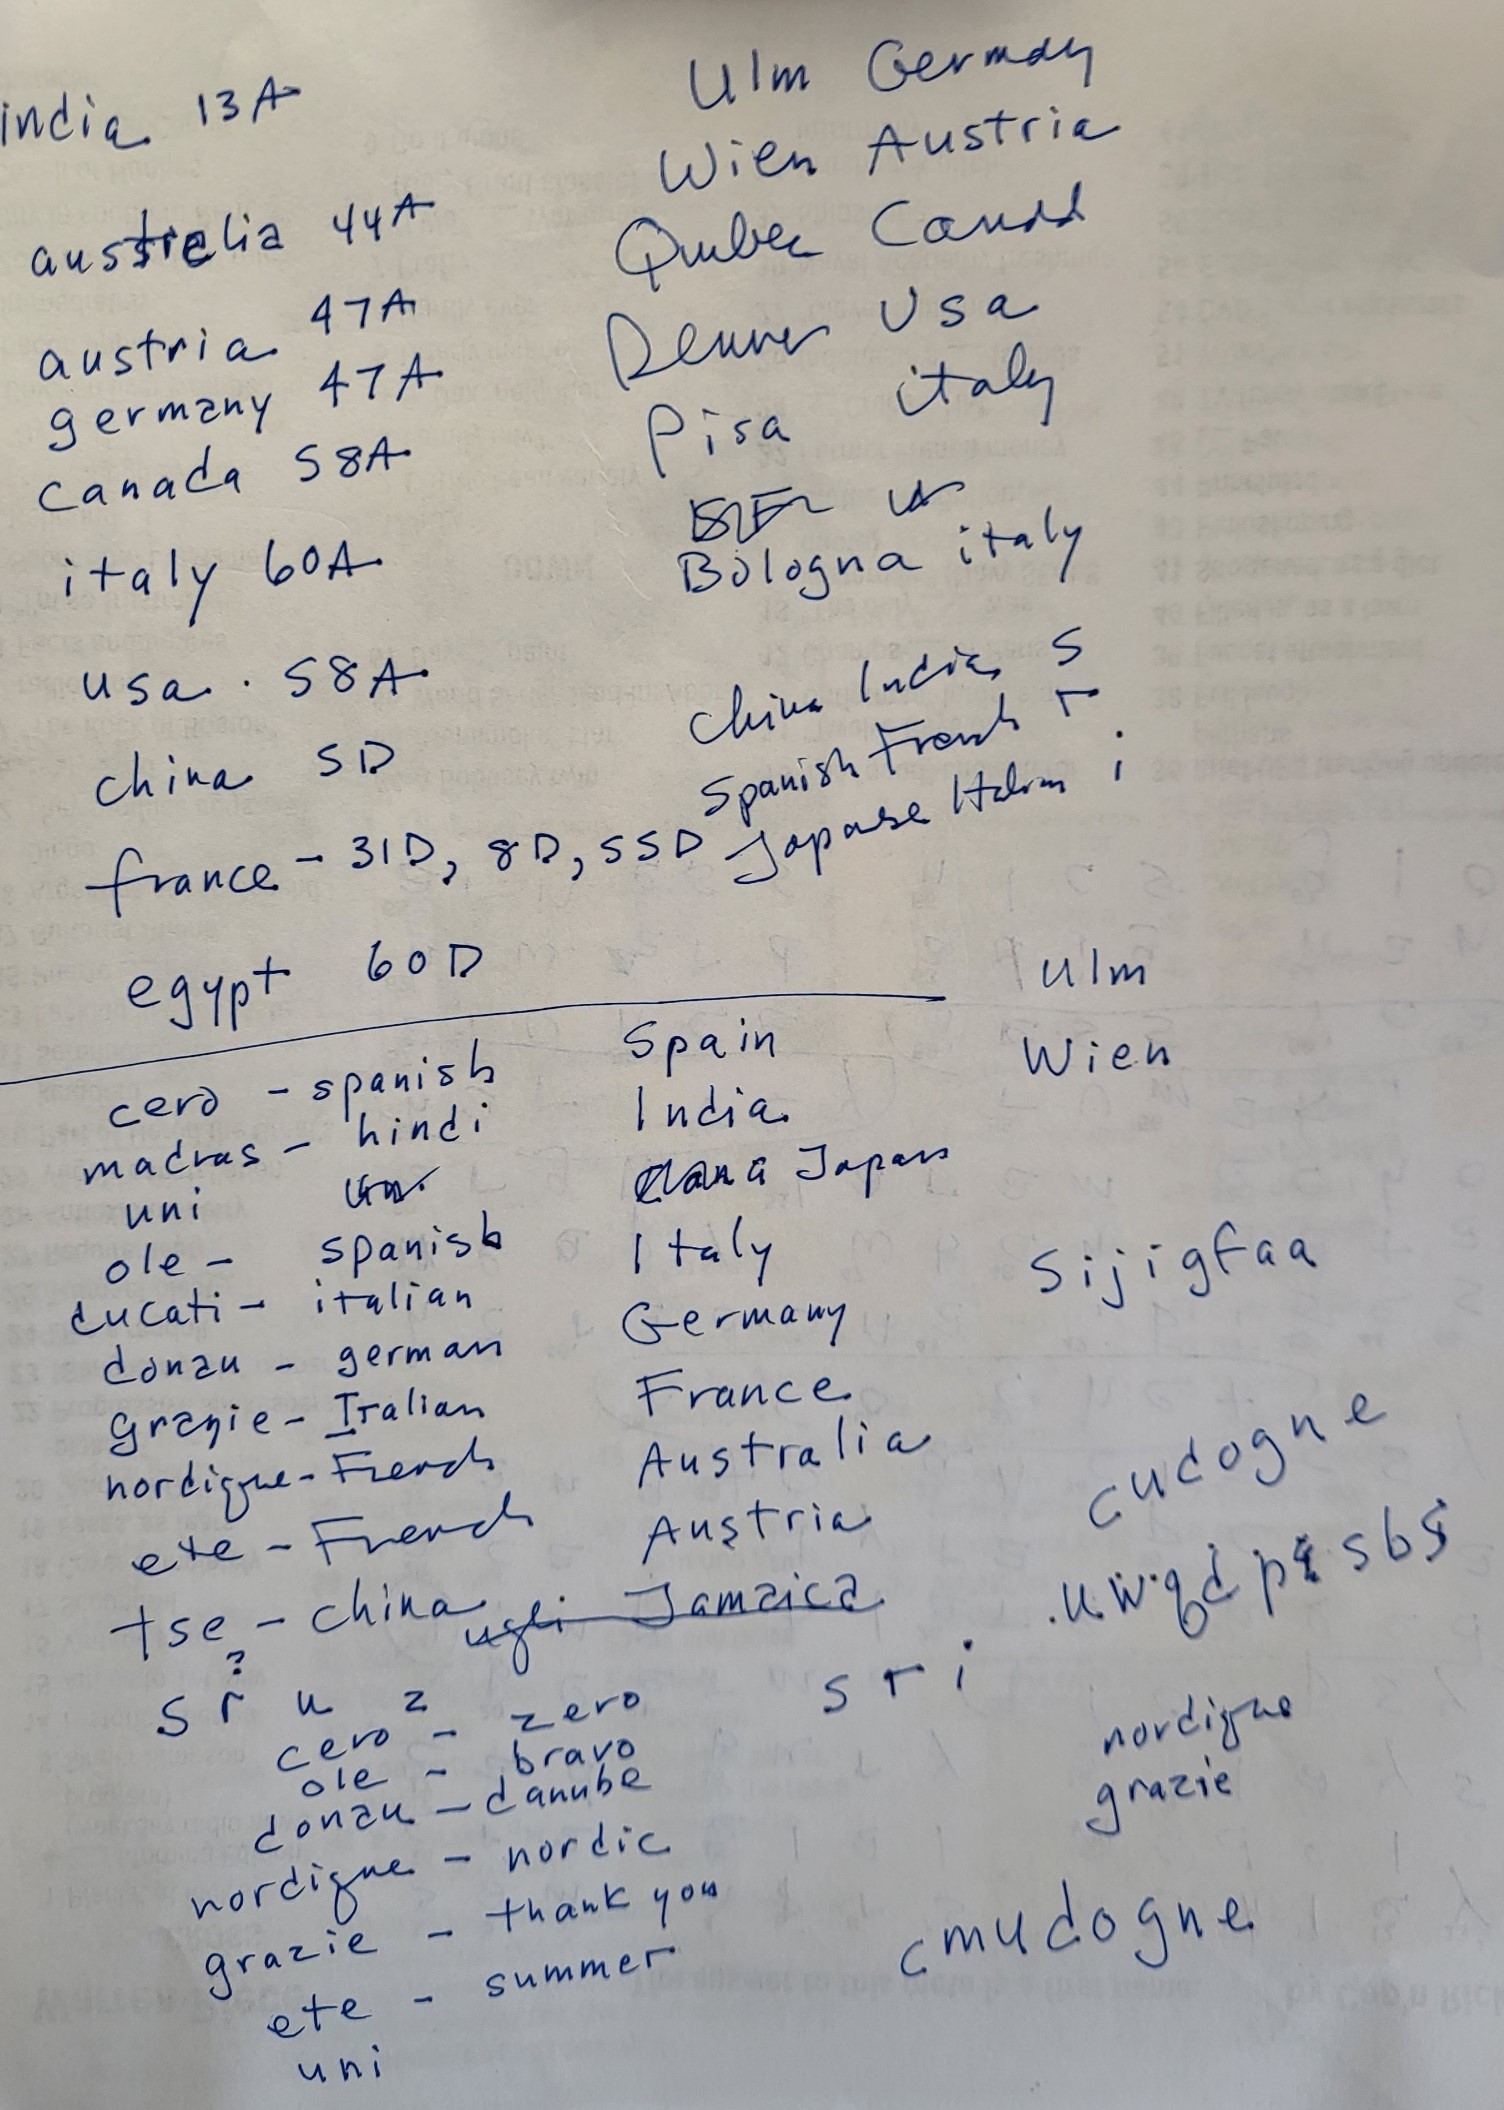 india 13A
australia 44A
austria 47A
germany 47A
canada 58A
italy 60A
usa. 58A
china 5D
france - 31D, 8D, 55D
egypt 60D
Ulm Germany
Wien Austria
Denver Usa
Pisa italy
Bologna italy
China India S
Spanish French r
Japanese Italian i
Ulm
Wien
cero - spanish
madras - hindi
uni
ole - spanish
ducati - italian
donau - german
grazie - Italian
nordique - French
ete - French
tse - china
?
ugli Jamaica
Spain
India
Japan
Italy
Germany
France
Australia
Austria
sijigfaa
cudogne
s r i
nordique
grazie
s r u z
cero - zero
ole - bravo
donau - danube
nordique - nordic
grazie - thank you
ete - summer
uni
cmudogne